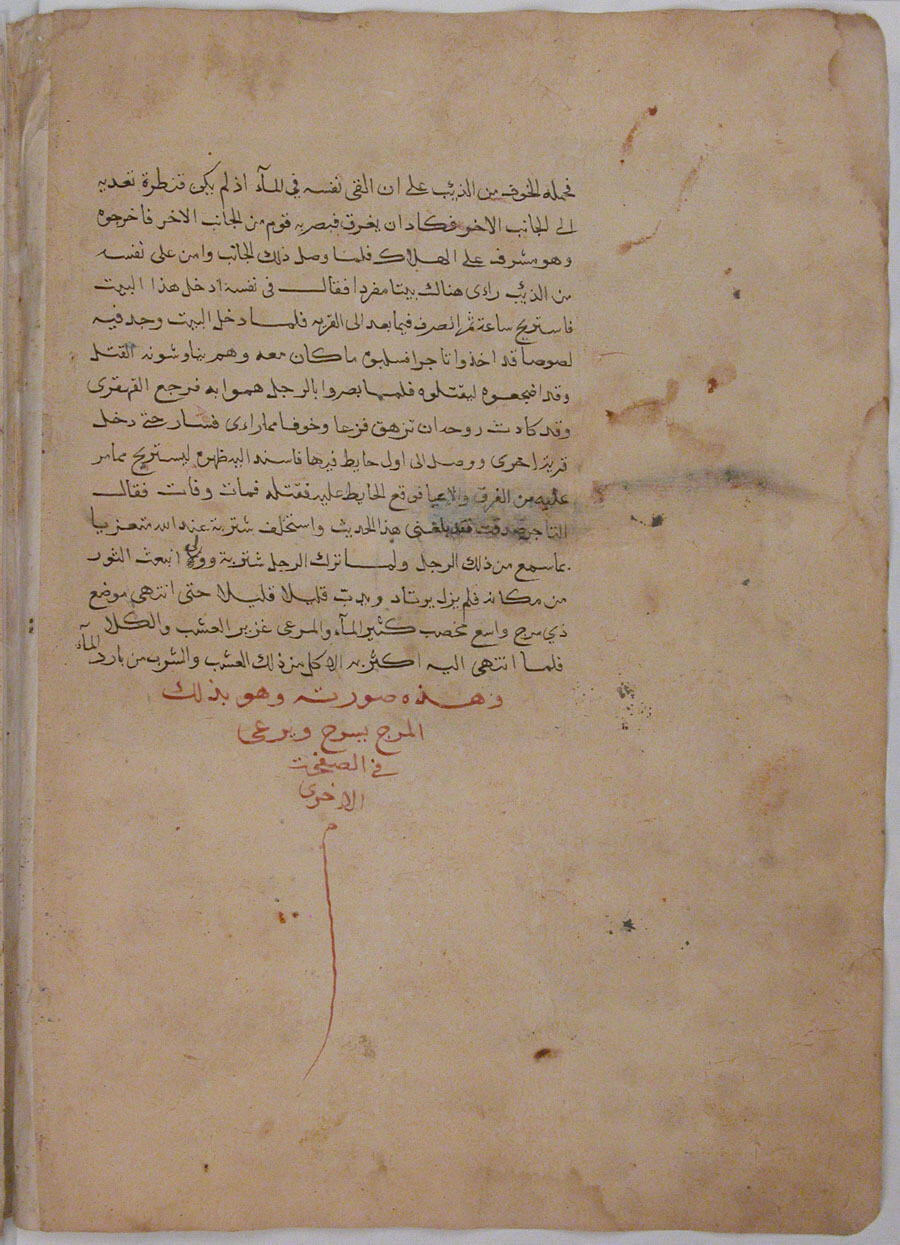 فحمله الخوف من الذيب على ان القى نفسه في المآء اذ لم يكن قنطرة تعديه
الى الجانب الاخر فكاد ان يغرق فبصر به قوم من الجانب الاخر فاخرجوه
وهو مشرف على الهلاك فلما وصل ذلك الجانب وامن على نفسه
من الذيب راى هناك بيتا مفردا فقال في نفسه ادخل هذا البيت
فاستريح ساعة ثم انصرف فيما بعد الى القريه فلما دخل البيت وجد فيه
لصوصا قد اخذوا تاجرا فسلبوه ما كان معه وهم يناوشونه القتل
وقد اضجعوه ليقتلوه فلما بصروا بالرجل هموا به فرجع القهقرى
وقد كادت روحه ان تزهق فزعا وخوفا مما راى فسار حتى دخل
قرية اخرى ووصل الى اول حايط فيها فاسند اليه ظهره ليستريح مما مر
عليه من الغرق والاعيا فوقع الحايط عليه فقتله فمات وفات فقال
التاجر صدقت قد بلغنى هذا الحديث واستخلف شتربة عند الله متعزيا
بما سمع من ذلك الرجل ولما ترك الرجل شتربة وولى انبعث الثور
من مكانه فلم يزل يرتاد ويدب قليلا قليلا حتى انتهى موضع
ذي مرج واسع مخصب كثير المآء والمرعى غزير العشب والكلا
فلما انتهى اليه اكثر به الاكل من ذلك العشب والشرب من بارد المآء
وهذه صورته وهو بذلك
المرج يسرح ويرعى
في الصفحة
الاخرى
م